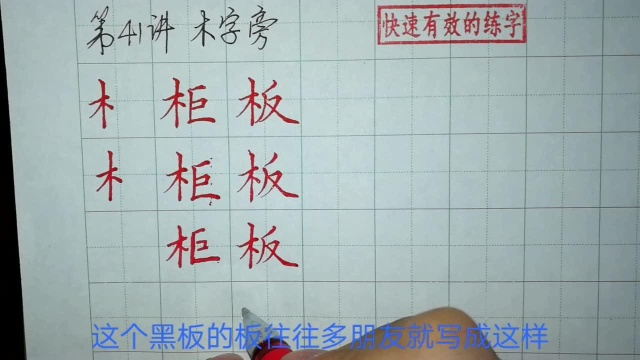 第41讲 木字旁
快速有效的练字
木 柜 板
木 柜 板
柜 板
这个黑板的板往往多朋友就写成这样